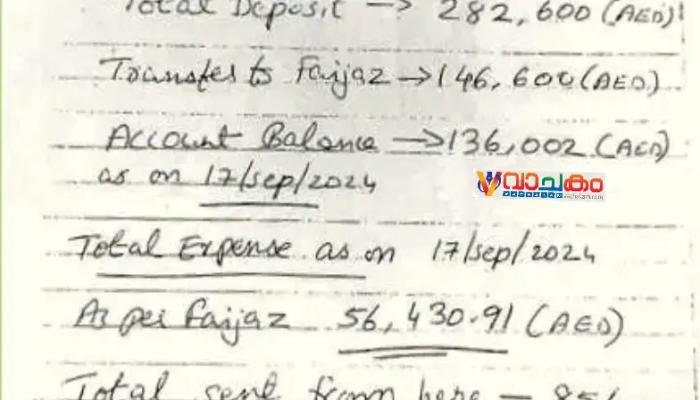 Total Deposit → 282,600 (AED)
Transfer to Faijaz → 146,600 (AED)
Account Balance → 136,002 (AED)
as on 17/Sep/2024
വാചകം
Total Expense as on 17/Sep/2024
As per Faijaz 56,430.91 (AED)
Total sent from here —